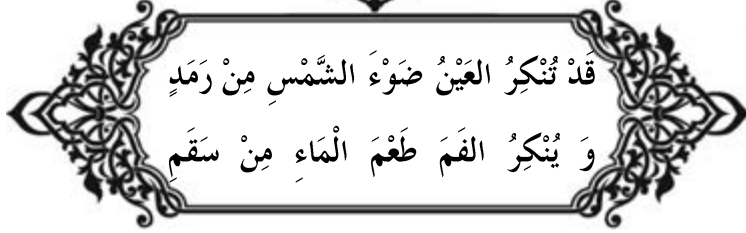 قَدْ تُنْكِرُ العَيْنُ ضَوْءَ الشَّمْسِ مِنْ رَمَدٍ
وَ يُنْكِرُ الفَمَ طَعْمَ الْمَاءِ مِنْ سَقَمِ